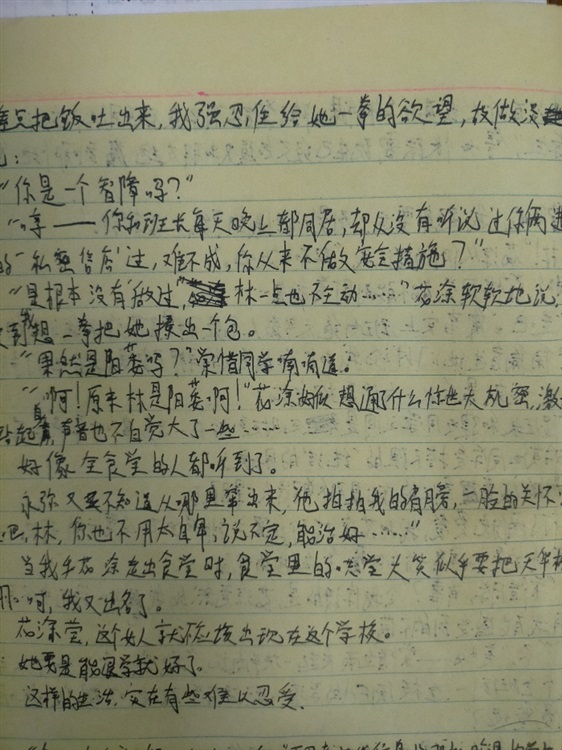 把饭吐出来,我强忍住给她一拳的欲望,故做没
:
“你是一个智障吗?”
“哼——你和班长每天晚上都同居,却从没有听说过你俩
的“私密售后”过,难不成,你从来不做安全措施?”
“是根本没有做过,林一点也不主动……”花涂软软地说,
到我想一拳把她揍出一个包。
“果然是阳萎吗?”荣惜同学喃喃道。
““啊!原来林是阳萎啊!”花涂好似想通了什么惊世大机密,激
站起身,声音也不自觉大了一些……
好像全食堂的人都听到了。
永弥又不知道从哪里窜出来,他拍拍我的肩膀,一脸的关怀
吧,林,你也不用太自卑,说不定,能治好……”
当我和花涂走出食堂时,食堂里的哄堂大笑似乎要把天花板
那时,我又出名了。
花涂莹,这个女人就不应该出现在这个学校。
她要是能退学就好了。
这样的生活,实在有些难以忍受.